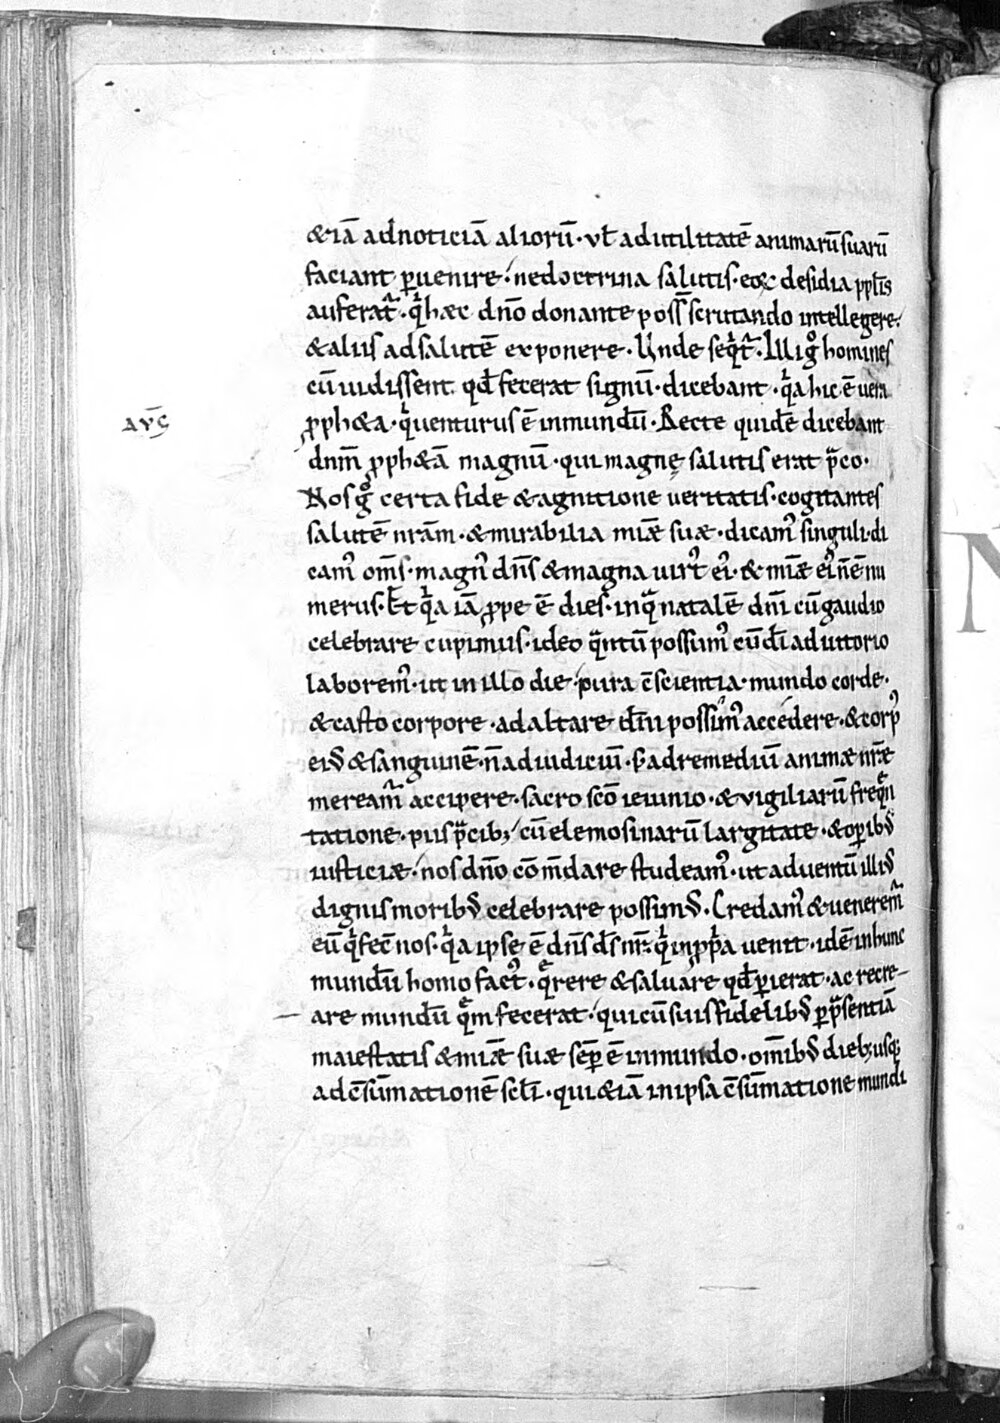 &iā adnoticiā aliorū· vƚ adutilitatē animarū suarū
faciant ꝑuenire· ne doctrina salutis· eoꝝ desidia ppƚis
auferat᷑· qͥ hæc dn̄o donante poss̄ scrutando intellegere·
& aliis adsalutē exponere· Unde seqͥt᷑· Illi gͦ homines
cū uidissent qđ fecerat signū· dicebant· qͥa hic ē uera
AVḠ
ꝓph&a· qͥ uenturus ē inmundū· Recte quidē dicebant
dnm̄ ꝓph&ā magnū· qui magnę salutis erat p̄co·
Nos gͦ certa fide & agnitione ueritatis· cogitantes
salutē nr̄am· & mirabilia mīæ suæ· dicamꝰ singuli· di
camꝰ om̄s· magnꝰ dn̄s & magna uirtꝰ eiꝰ· & mīæ eiꝰ n̄ ē nu
merus· Et qͥa iā ꝓpe ē dies· inqͣ natalē dn̄i cū gaudio
celebrare cupimus· ideo qͣntū possimꝰ cū dī adiutorio
laboremꝰ· ut in illo die· pura c̄scientia· mundo corde·
& casto corpore· ad altare dn̄i possimꝰ accedere· & corpꝰ
eiꝰ & sanguinē· n̄ ad iudiciū· s; ad remediū animæ nr̄æ
mereamꝰ accipere· sacro sc̄o ieiunio· & uigiliarū freqͣn
tatione· piis p̄cib;· cū elemosinarū largitate· & oꝑibꝰ
iusticiæ· nos dn̄o cōm̄dare studeamꝰ· ut aduentū illiꝰ
dignis moribꝰ celebrare possimꝰ· Credamꝰ & uenerem᷑
eū qͥ fec̄ nos· qͥa ipse ē dn̄s ds̄ nr̄· qͥ in ꝓpͥa uenit· idē in hunc
mundū homo factꝰ· qͣrere & saluare qđ ꝑierat· ac recre–
are mundū qͣm fecerat· qui cū suis fidelibꝰ ꝑ p̄sentiā
maiestatis & mīæ suæ sēꝑ ē in mundo· om̄ibꝰ dieb; usq;
ad c̄sūmationē scƚi· qui &iā in ipsa c̄sūmatione mundi